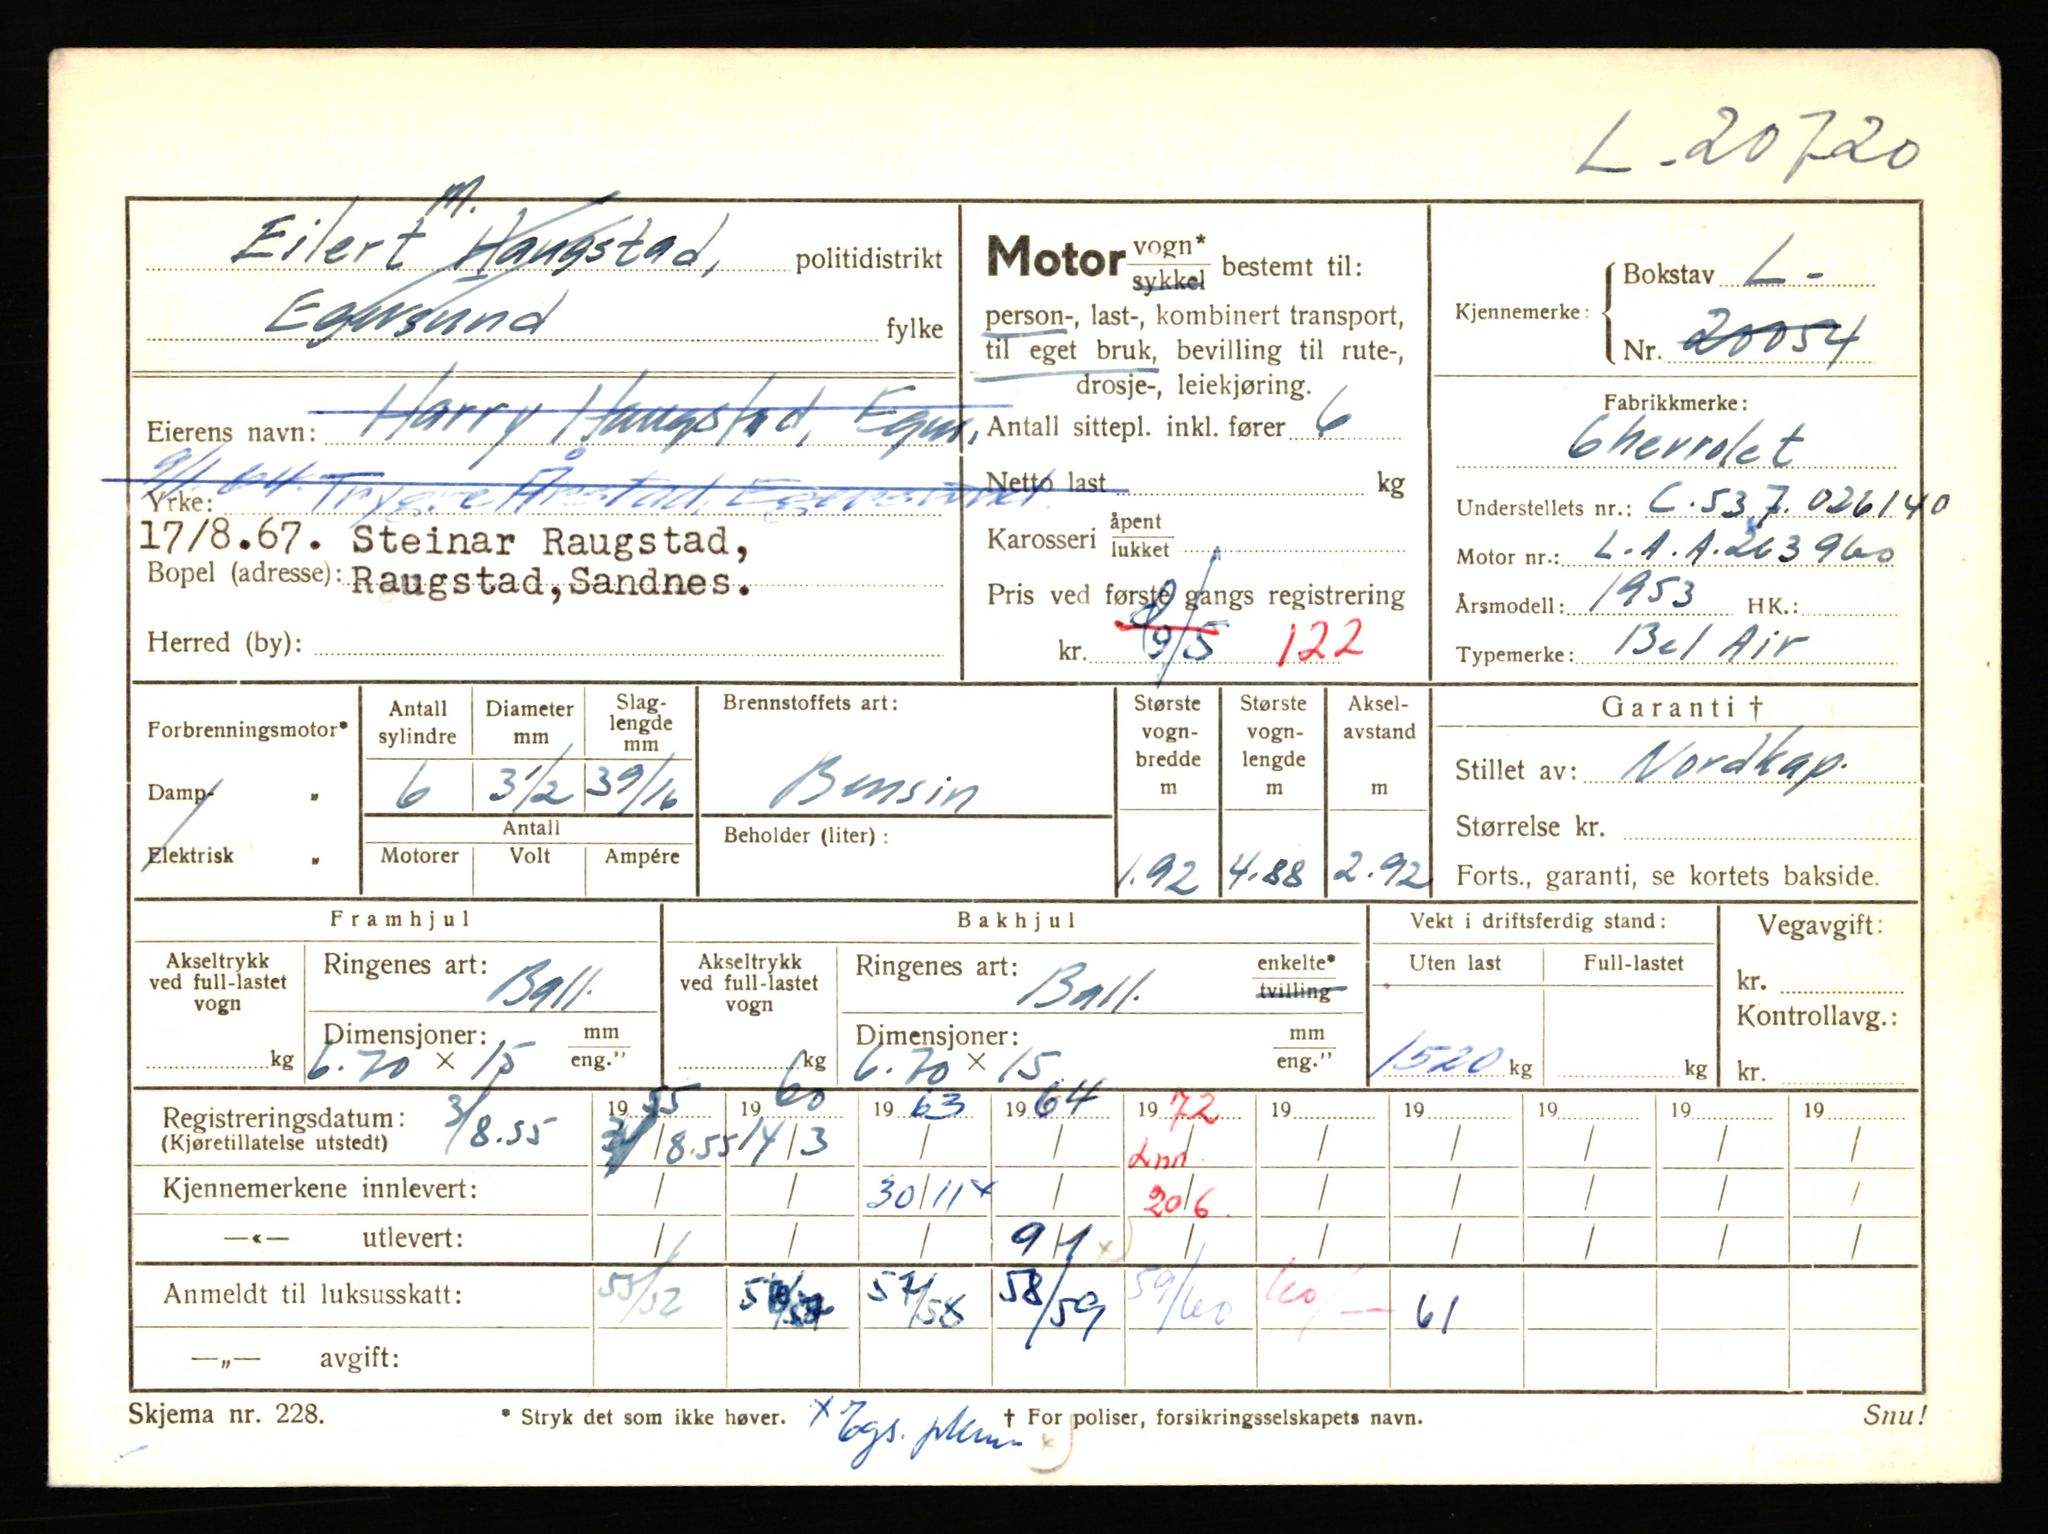 L-20720
M.
Eilert Haugstad, politidistrikt
Egersund fylke
Eierens navn: Harry Haugstad, Egers.
Yrke: 9/1.64. Trygve Årstad, Egersund.
17/8.67. Steinar Raugstad,
Bopel (adresse): Raugstad,Sandnes.
Herred (by):
Motor vogn* sykkel bestemt til:
person-, last-, kombinert transport,
til eget bruk, bevilling til rute-,
drosje-, leiekjøring.
Antall sittepl. inkl. fører 6
Netto last kg
Karosseri åpent lukket
Pris ved første gangs registrering
kr. 9/5 122
Kjennemerke: Bokstav L-
Nr. 20054
Fabrikkmerke:
Chevrolet
Understellets nr.: C.53.7.026140
Motor nr.: L.A.A.263960
Årsmodell: 1953 HK.:
Typemerke: Bel Air
Forbrenningsmotor*
Damp- „
Elektrisk „
Antall sylindre Diameter mm Slag-lengde mm
6 3 1/2 3 9/16
Antall
Motorer Volt Ampére
Brennstoffets art:
Bensin
Beholder (liter):
Største vogn-bredde m Største vogn-lengde m Aksel-avstand m
1.92 4.88 2.92
Garanti †
Stillet av: Nordkap.
Størrelse kr.
Forts., garanti, se kortets bakside.
Framhjul
Akseltrykk ved full-lastet vogn
kg
Ringenes art: Ball.
Dimensjoner: mm eng."
6.70 × 15
Bakhjul
Akseltrykk ved full-lastet vogn
kg
Ringenes art: Ball. enkelte* tvilling
Dimensjoner: mm eng."
6.70 × 15
Vekt i driftsferdig stand:
Uten last Full-lastet
1520 kg kg
Vegavgift:
kr.
Kontrollavg.:
kr.
Registreringsdatum: 3/8.55 1955 1960 1963 1964 1972 19 19 19 19 19
(Kjøretillatelse utstedt) 3/8.55 14/3 / / Inn. / / / / /
Kjennemerkene innlevert: / / 30/11 x / 20/6. / / / / /
—«— utlevert: / / / 9/1 x / / / / / /
Anmeldt til luksusskatt: 55/52 57/58 58/59 59/60 60/— 61
—„— avgift:
Skjema nr. 228. * Stryk det som ikke høver. † For poliser, forsikringsselskapets navn. Snu!
x